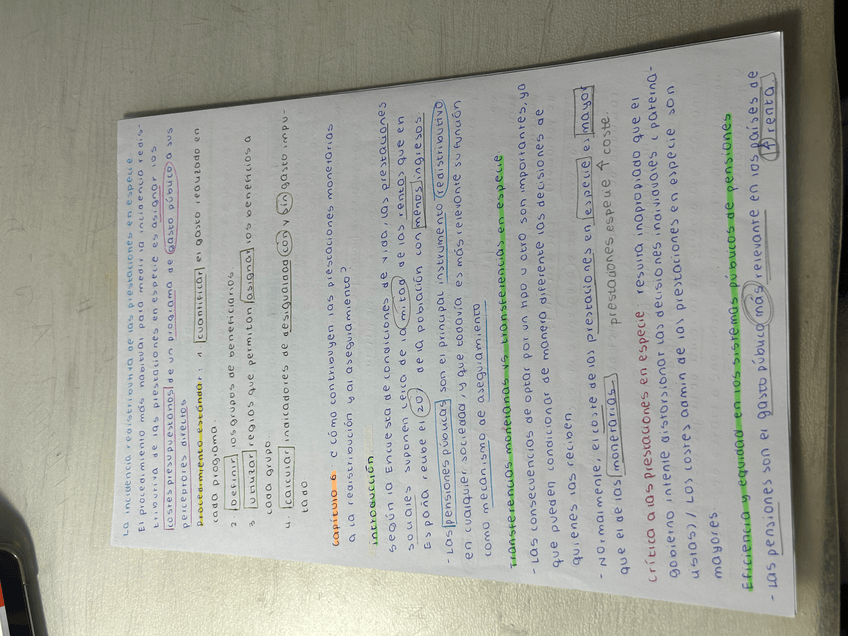 La incidencia redistributiva de las prestaciones en especie
El procedimiento más habitual para medir la incidencia redis-
tributiva de las prestaciones en especie es asignar los
costes presupuestarios de un programa de gasto público a sus
perceptores directos
procedimiento estándar: 1. cuantificar el gasto realizado en
cada programa.
2. Definir los grupos de beneficiarios
3. utilizar reglas que permitan asignar los beneficios a
cada grupo.
4. calcular indicadores de desigualdad con y sin gasto impu-
tado
capítulo 6: ¿cómo contribuyen las prestaciones monetarias
a la redistribución y al aseguramiento?
introducción
según la Encuesta de condiciones de vida, las prestaciones
sociales suponen cerca de la mitad de las rentas que en
España recibe el 20 de la población con menos ingresos
- Las pensiones públicas son el principal instrumento redistributivo
en cualquier sociedad, y que todavía es más relevante su función
como mecanismo de aseguramiento
Transferencias monetarias vs transferencias en especie
- Las consecuencias de optar por un tipo u otro son importantes, ya
que pueden condicionar de manera diferente las decisiones de
quienes las reciben
- Normalmente, el coste de las prestaciones en especie es mayor
que el de las monetarias. prestaciones especie ↑ coste.
crítica a las prestaciones en especie: resulta inapropiado que el
gobierno intente distorsionar las decisiones individuales (paterna-
listas) / Los costes admin de las prestaciones en especie son
mayores
Eficiencia y equidad en los sistemas públicos de pensiones
- Las pensiones son el gasto público más relevante en los países de
↑ renta.